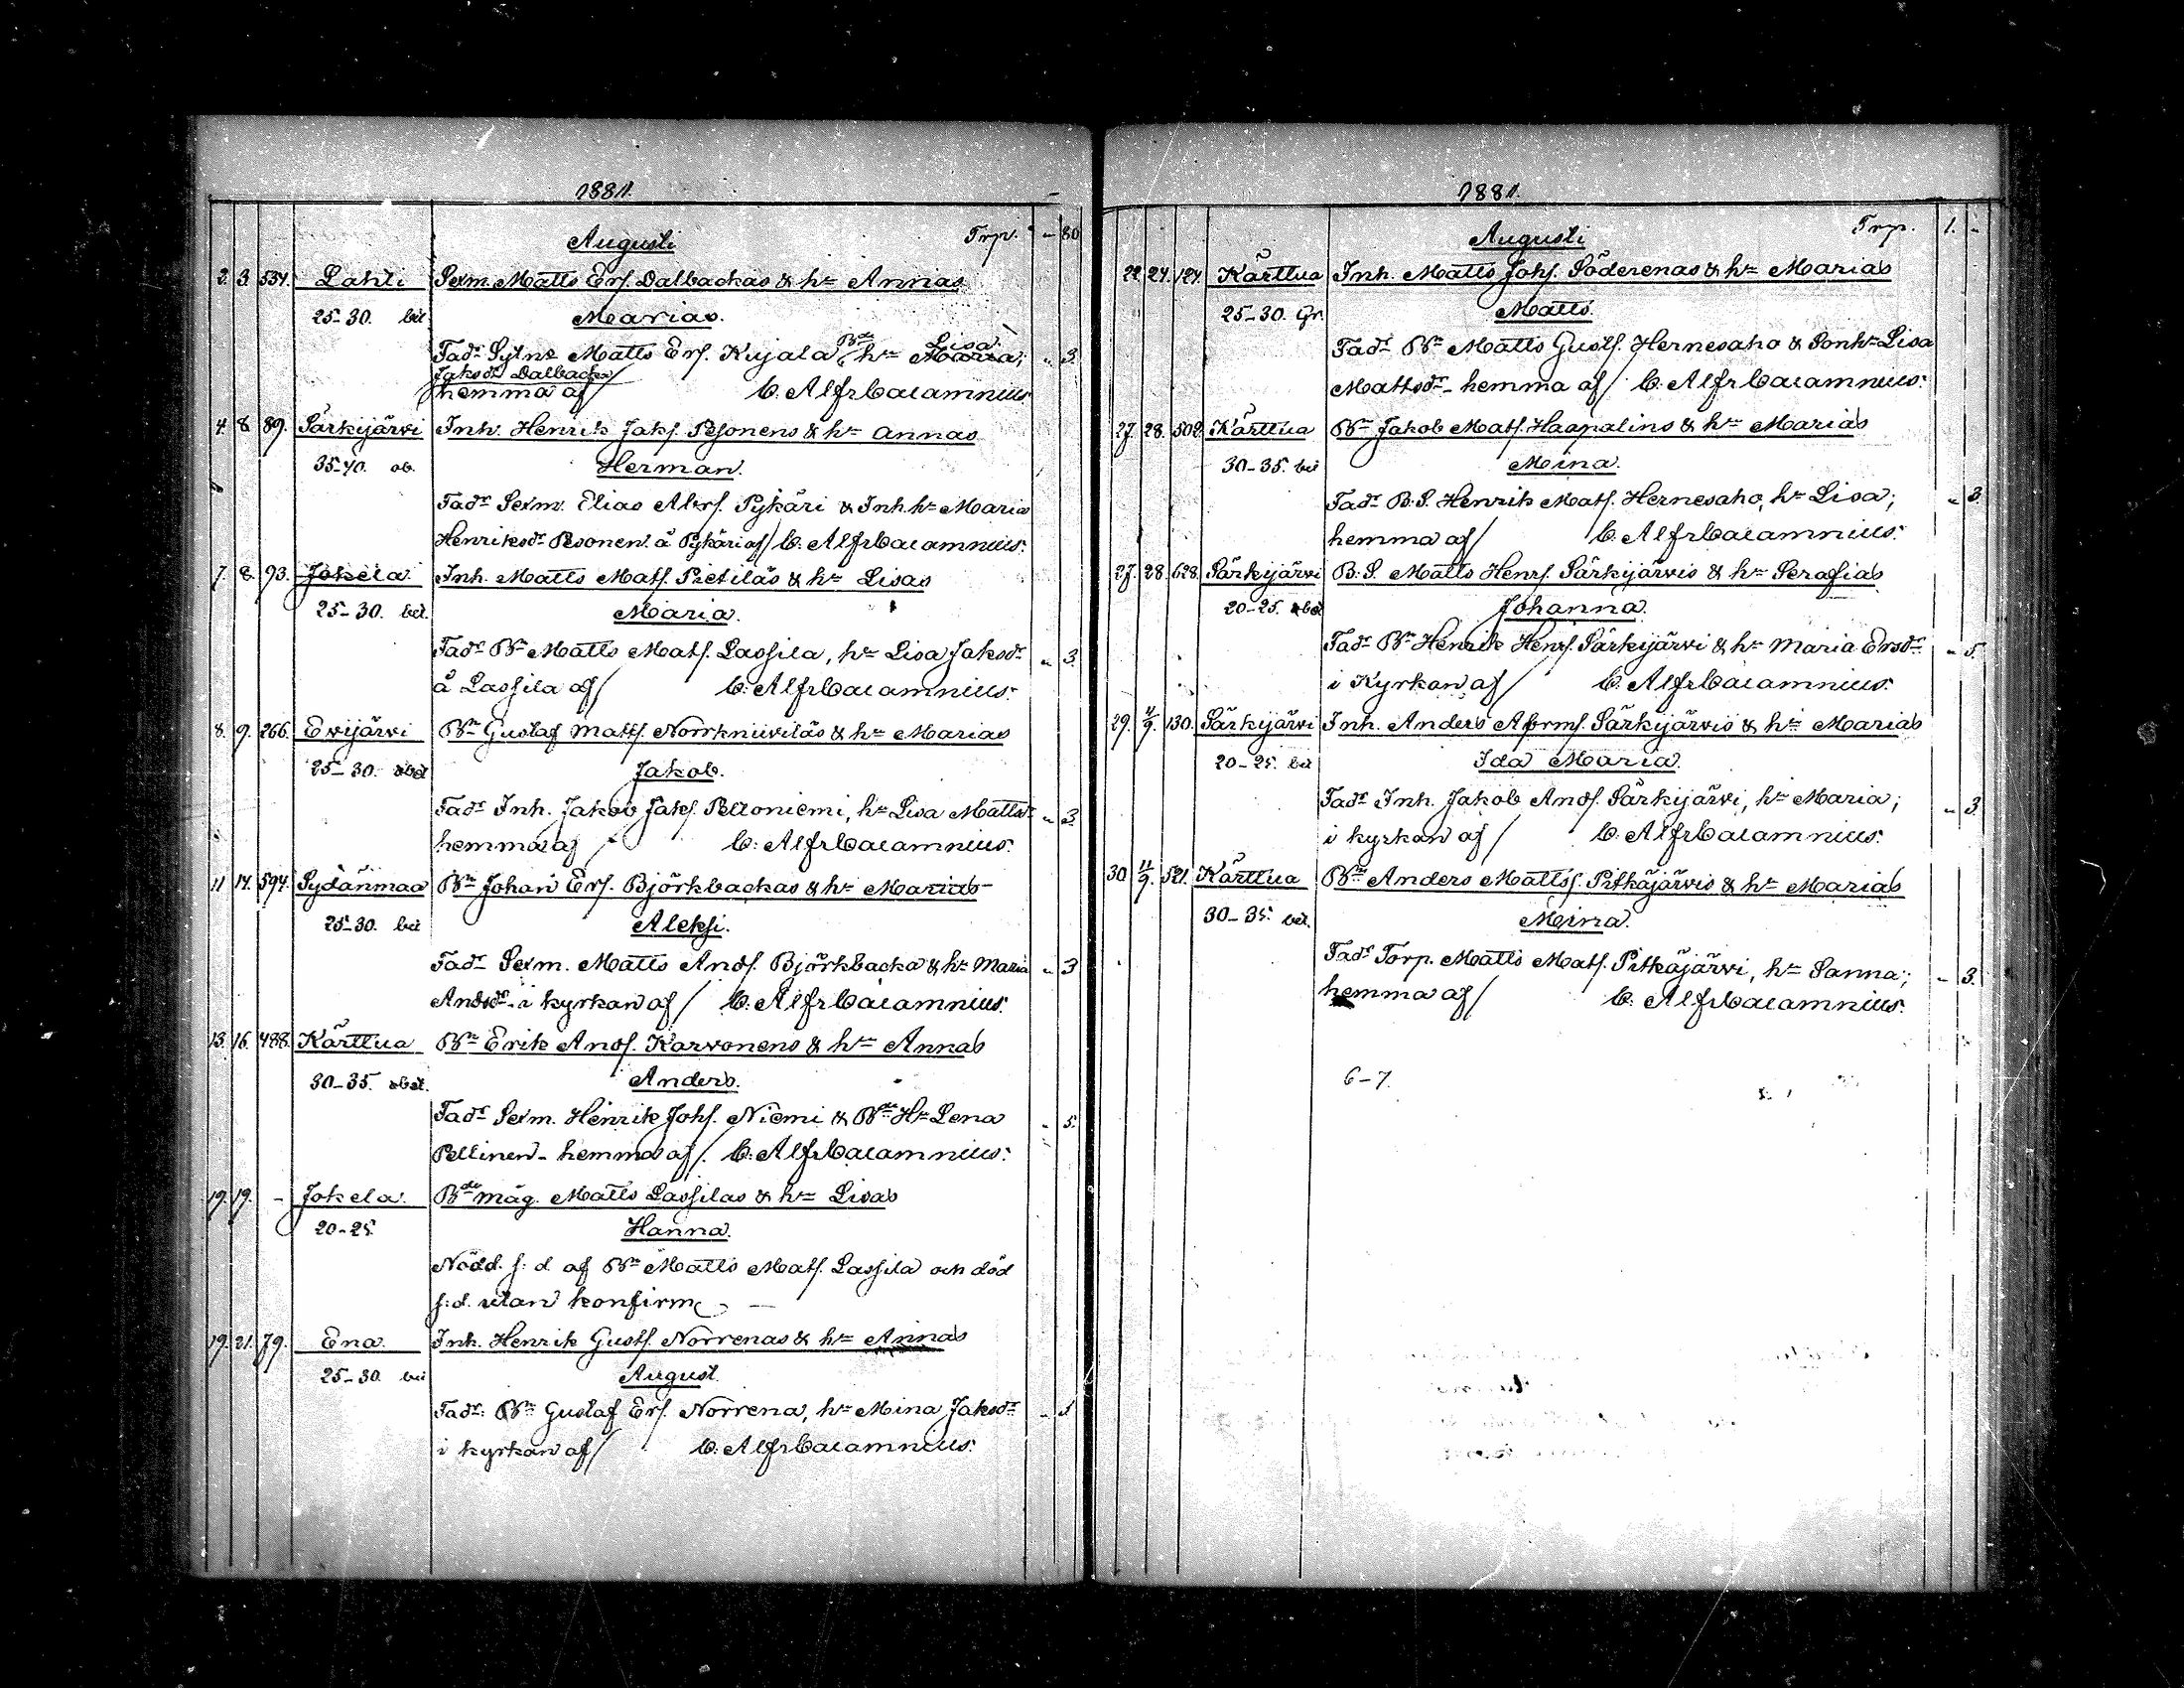 1881.
Augusti Trp. - 80
2. 3. 537. Lahti Sexm. Matts Ers. Dalbackas & hr Annas
25-30. bet. Marias.
Bde Lisa
Fadr Sytnr Matts Ers. Kujala, hr Maria; " 3.
Jaksdr Dalbacka
hemma af/ C: Alfr Calamnius.
4. 8. 89. Särkijärvi Inh. Henrik Jaks. Pesonens & hr Annas
35-40. ob. Herman.
Fadr Sexm. Elias Abrs. Pykäri & Inh. hr Maria
Henriksdr Pesonen å Pykäri af/ C: Alfr Calamnius.
7. 8. 93. Jokela Inh. Matts Mats. Pietiläs & hr Lisas
25-30. bet. Maria.
Fadr Bn Matts Mats. Lassila, hr Lisa Jaksdr " 3.
å Lassila af/ C: Alfr Calamnius.
8. 9. 266. Evijärvi Bn Gustaf Matts. Norrkniiviläs & hr Marias
25-30. obet Jakob.
Fadr Inh. Jakob Jaks. Peltoniemi, hr Lisa Mattsdr " 3.
hemma af / C: Alfr Calamnius.
11 14. 594. Sydänmaa Bn Johan Ers. Björkbackas & hr Marias
25-30. bet Aleksi.
Fadr Sexm. Matts Ands. Björkbacka & hr Maria " 3
Andsdr i kyrkan af/ C: Alfr Calamnius.
13. 16. 488. Kärttua Bn Erik Ands. Karvonens & hr Annas
30-35. obet. Anders.
Fadr Sexm. Henrik Johs. Niemi & Bde Hr Lena " 5.
Pellinen - hemma af/. C: Alfr Calamnius.
19. 19. - Jokela. Bde måg. Matts Lassilas & hr Lisas
20-25. Hanna.
Nödd. s: d af Bn Matts Mats. Lassila och död
s: d. utan konfirm. —
19. 21. 79. Ena. Inh. Henrik Gusts. Norrenas & hr Annas
25-30 bet August.
Fadr: Bn Gustaf Ers. Norrena, hr Mina Jaksdr
i kyrkan af/ C: Alfr Calamnius.
1881.
Augusti Trp. 1. -
22. 24. 124. Kärttua Inh. Matts Johs. Söderenas & hr Marias
25-30. Gr. Matts.
Fadr Bn Matts Gusts. Hernesaho & Sonhr Lisa
Mattsdr - hemma af/ C: Alfr Calamnius.
27. 28. 502. Kärttua Bn Jakob Mats. Haapalins & hr Marias
30-35. bet Mina.
Fadr B. S. Henrik Mats. Hernesaho, hr Lisa; " 3.
hemma af/ C: Alfr Calamnius.
27. 28. 628. Särkijärvi B. S. Matts Henrs. Särkijärvis & hr Serafias
20-25. obet Johanna.
Fadr Bn Henrik Henrs. Särkijärvi & hr Maria Ersdr " 5.
i Kyrkan af/ C: Alfr Calamnius.
29. 4/9. 130. Särkijärvi Inh. Anders Abrms. Särkijärvis & hr Marias
20-25. bet Ida Maria.
Fadr Inh. Jakob Ands. Särkijärvi, hr Maria; " 3.
i kyrkan af/ C: Alfr Calamnius.
30 11/9. 521. Kärttua Bn Anders Mattss. Pitkäjärvis & hr Marias
30-35. bet. Mina.
Fadr Torp. Matts Mats. Pitkäjärvi, hr Sanna; " 3.
hemma af/ C: Alfr Calamnius.
6-7.